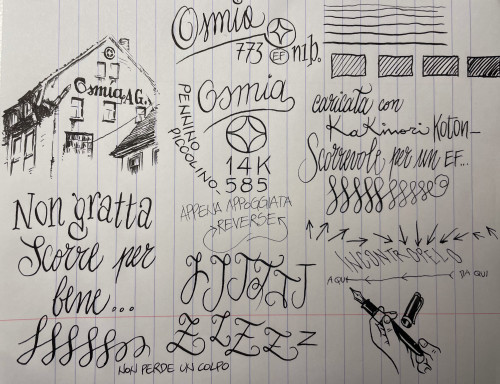 Osmia A.G.
Non gratta
Scorre per
bene...
SSSSSSSS
NON PERDE UN COLPO
Osmia
773 EF nib.
Osmia
PENNINO
PICCOLINO.
14K
585
APPENA APPOGGIATA
REVERSE
Z Z Z Z Z
caricata con
KaKimori Koton
Scorrevole per un EF...
INCONTROPELO
A QUI
DA QUI